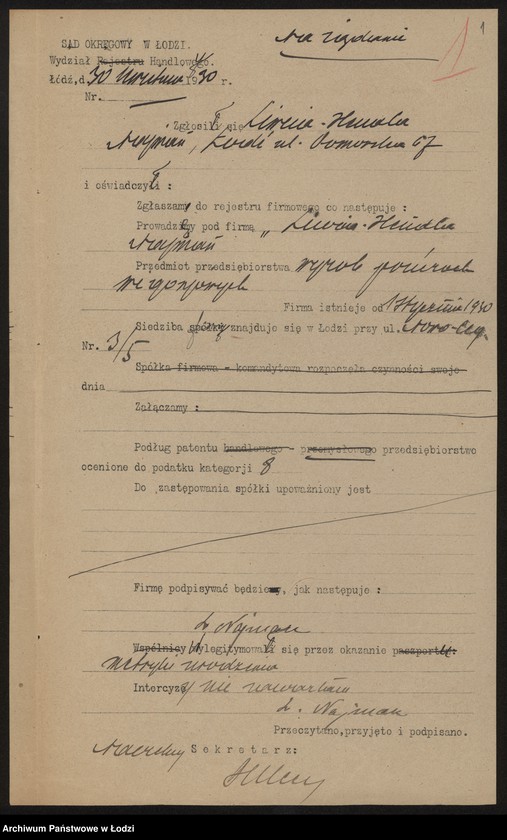 1
Na żądanie
1
SĄD OKRĘGOWY W ŁODZI.
Wydział Rejestru Handlowego.
Łódź, d. 30 1930 r.
Nr.
Zgłosił się
Najman, Łódź ul. Pomorska 67
i oświadczył :
Zgłaszam do rejestru firmowego co następuje :
Prowadzę pod firmą „
Najman
Przedmiot przedsiębiorstwa wyrób
wigonjowych
Firma istnieje od 1 stycznia 1930
Siedziba firmy znajduje się w Łodzi przy ul. Nowo-Ceg.
Nr. 3/5
Spółka firmowa - komandytowa rozpoczęła czynności swoje
dnia
Załączamy :
Podług patentu handlowego - przemysłowego przedsiębiorstwo
ocenione do podatku kategorji 8
Do zastępowania spółki upoważniony jest
Firmę podpisywać będzie, jak następuje :
L. Najman
Wspólnicy wylegitymował się przez okazanie paszportu:
metryki urodzenia
Intercyzy nie zawarłam
L. Najman
Przeczytano,przyjęto i podpisano.
Naczelny Sekretarz:
Archiwum Państwowe w Łodzi